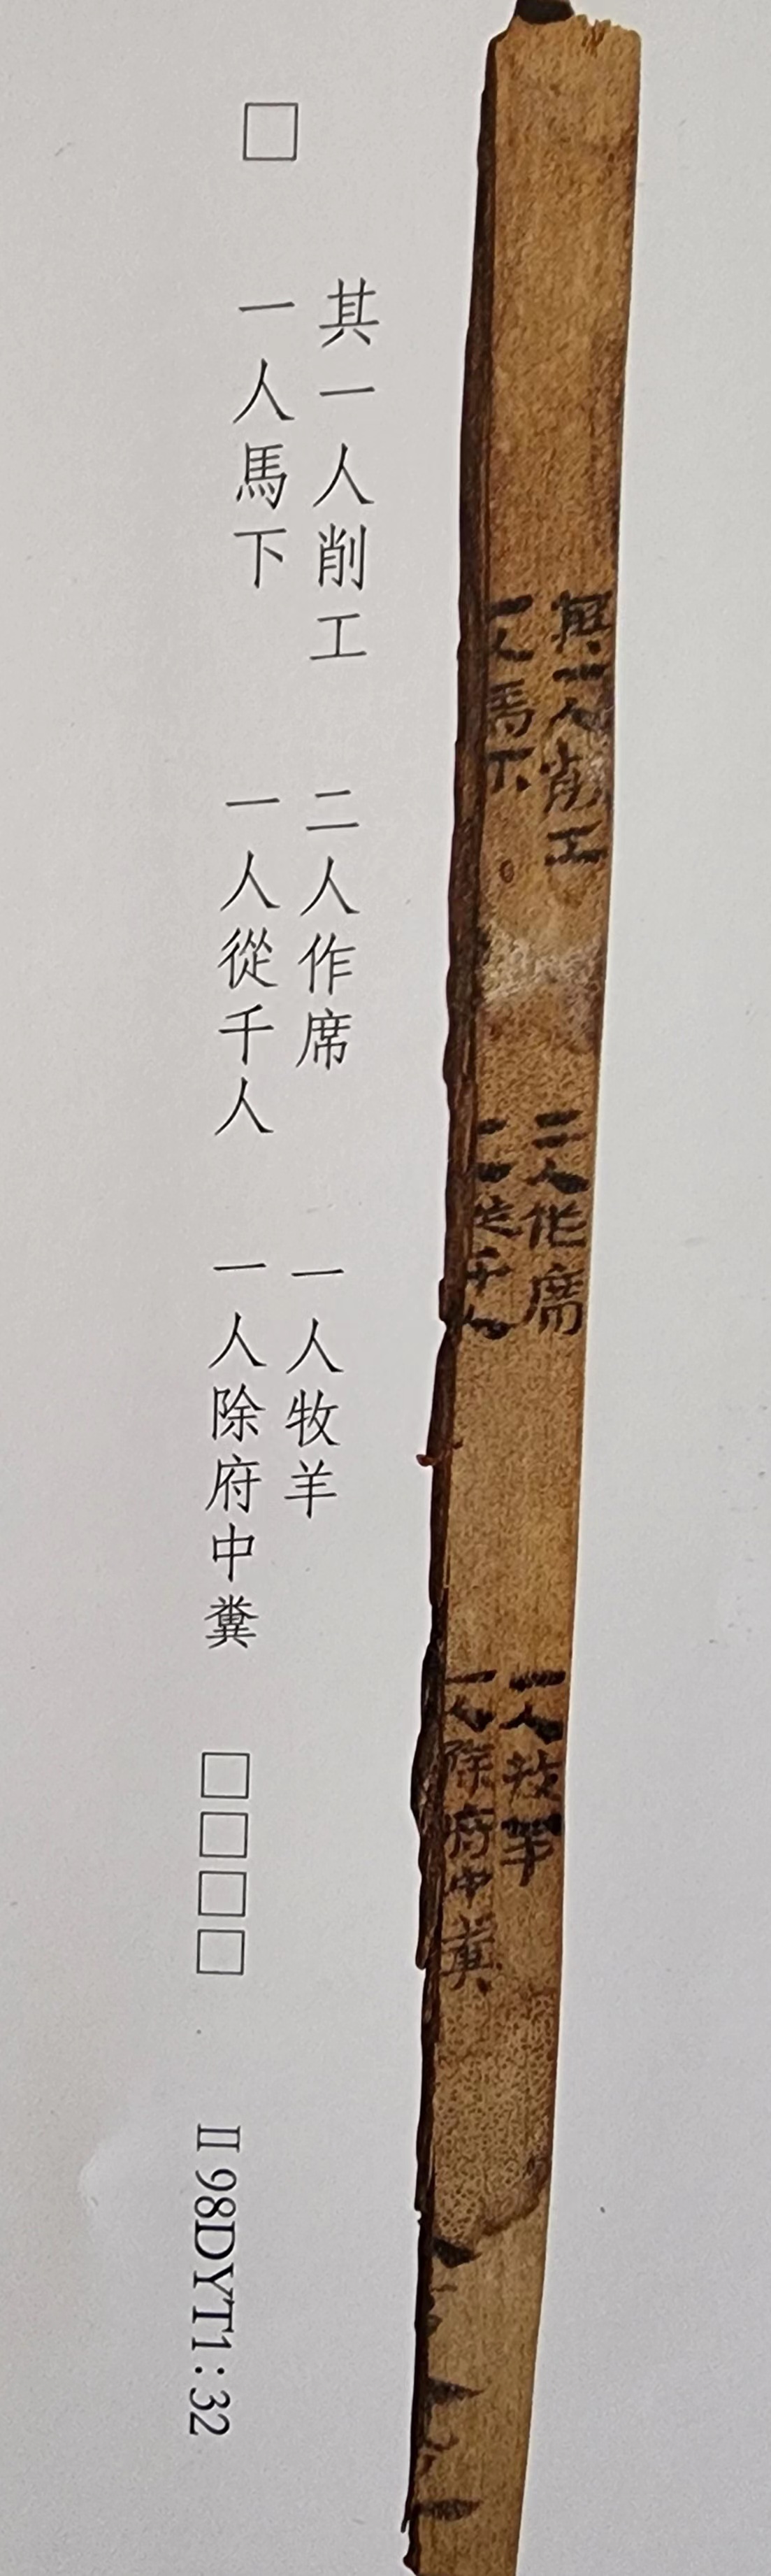 其一人削工　二人作席　一人牧羊
□　一人馬下　一人從千人　一人除府中糞　□□□□　Ⅱ98DYT1:32
其一人削工　二人作席　一人牧羊
一人馬下　一人從千人　一人除府中糞